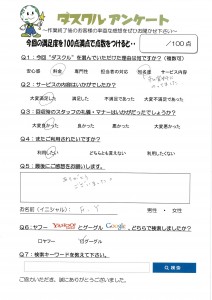 ダスクル アンケート
～作業終了後のお客様の率直な感想をぜひお聞かせ下さい～
今回の満足度を100点満点で点数をつけると・・ ／100点
Q1：今回「ダスクル」を選んでいただいた理由は何ですか？(複数可)
安心感 料金 専門性 担当者の対応 知名度 サービス内容
Q2：サービスの内容はいかがでしたか？
大変満足した 満足した 不満だった 大変不満だった
Q3：担当者のスタッフの礼儀・マナーはいかがだったでしょうか？
大変良かった 良かった 悪かった 大変悪かった
Q4：またご利用されたいですか？
利用したい どちらとも言えない 利用したくない
Q5：最後にご感想をお願いします。
ありがとう
ございました。
お名前（イニシャル）： 男性 ・ 女性
Q6：ヤフー YAHOO! とグーグル Google、どちらで検索しましたか？
ロヤフー グーグル
Q7：検索キーワードを教えて下さい。
検索
ご協力いただき、誠にありがとうございました。